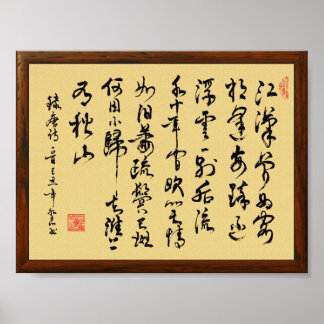 江漢曾為客
相逢每醉還
浮雲一別後流
水十年間歡笑情
如舊蕭疏鬢已斑
何因不歸去淮上
有秋山
錄唐詩一首